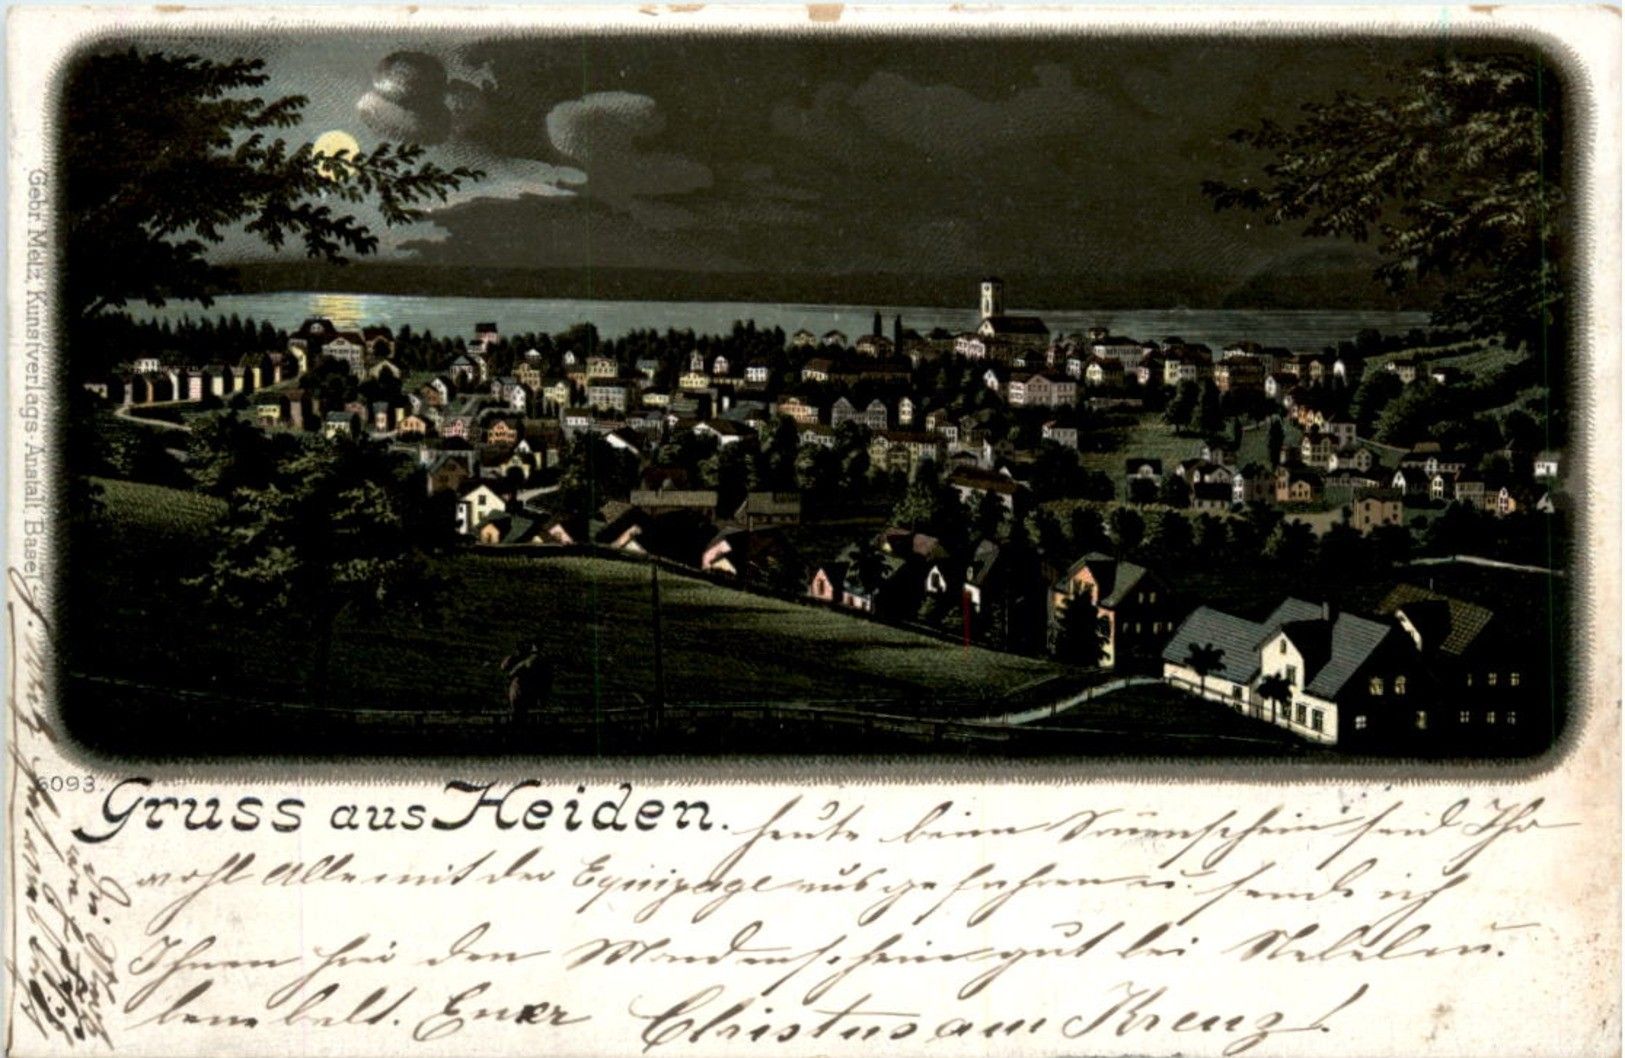 Gebr. Metz, Kunstverlags-Anstalt, Basel.
6093.
Gruss aus Heiden.
heute beim Sonnenschein seid Ihr
wohl Alle mit der Equipage ausgefahren u. sende ich
Ihnen hier den Mondenschein gut bei Nebel u.
benebelt. Euer Christus am Kreuz!